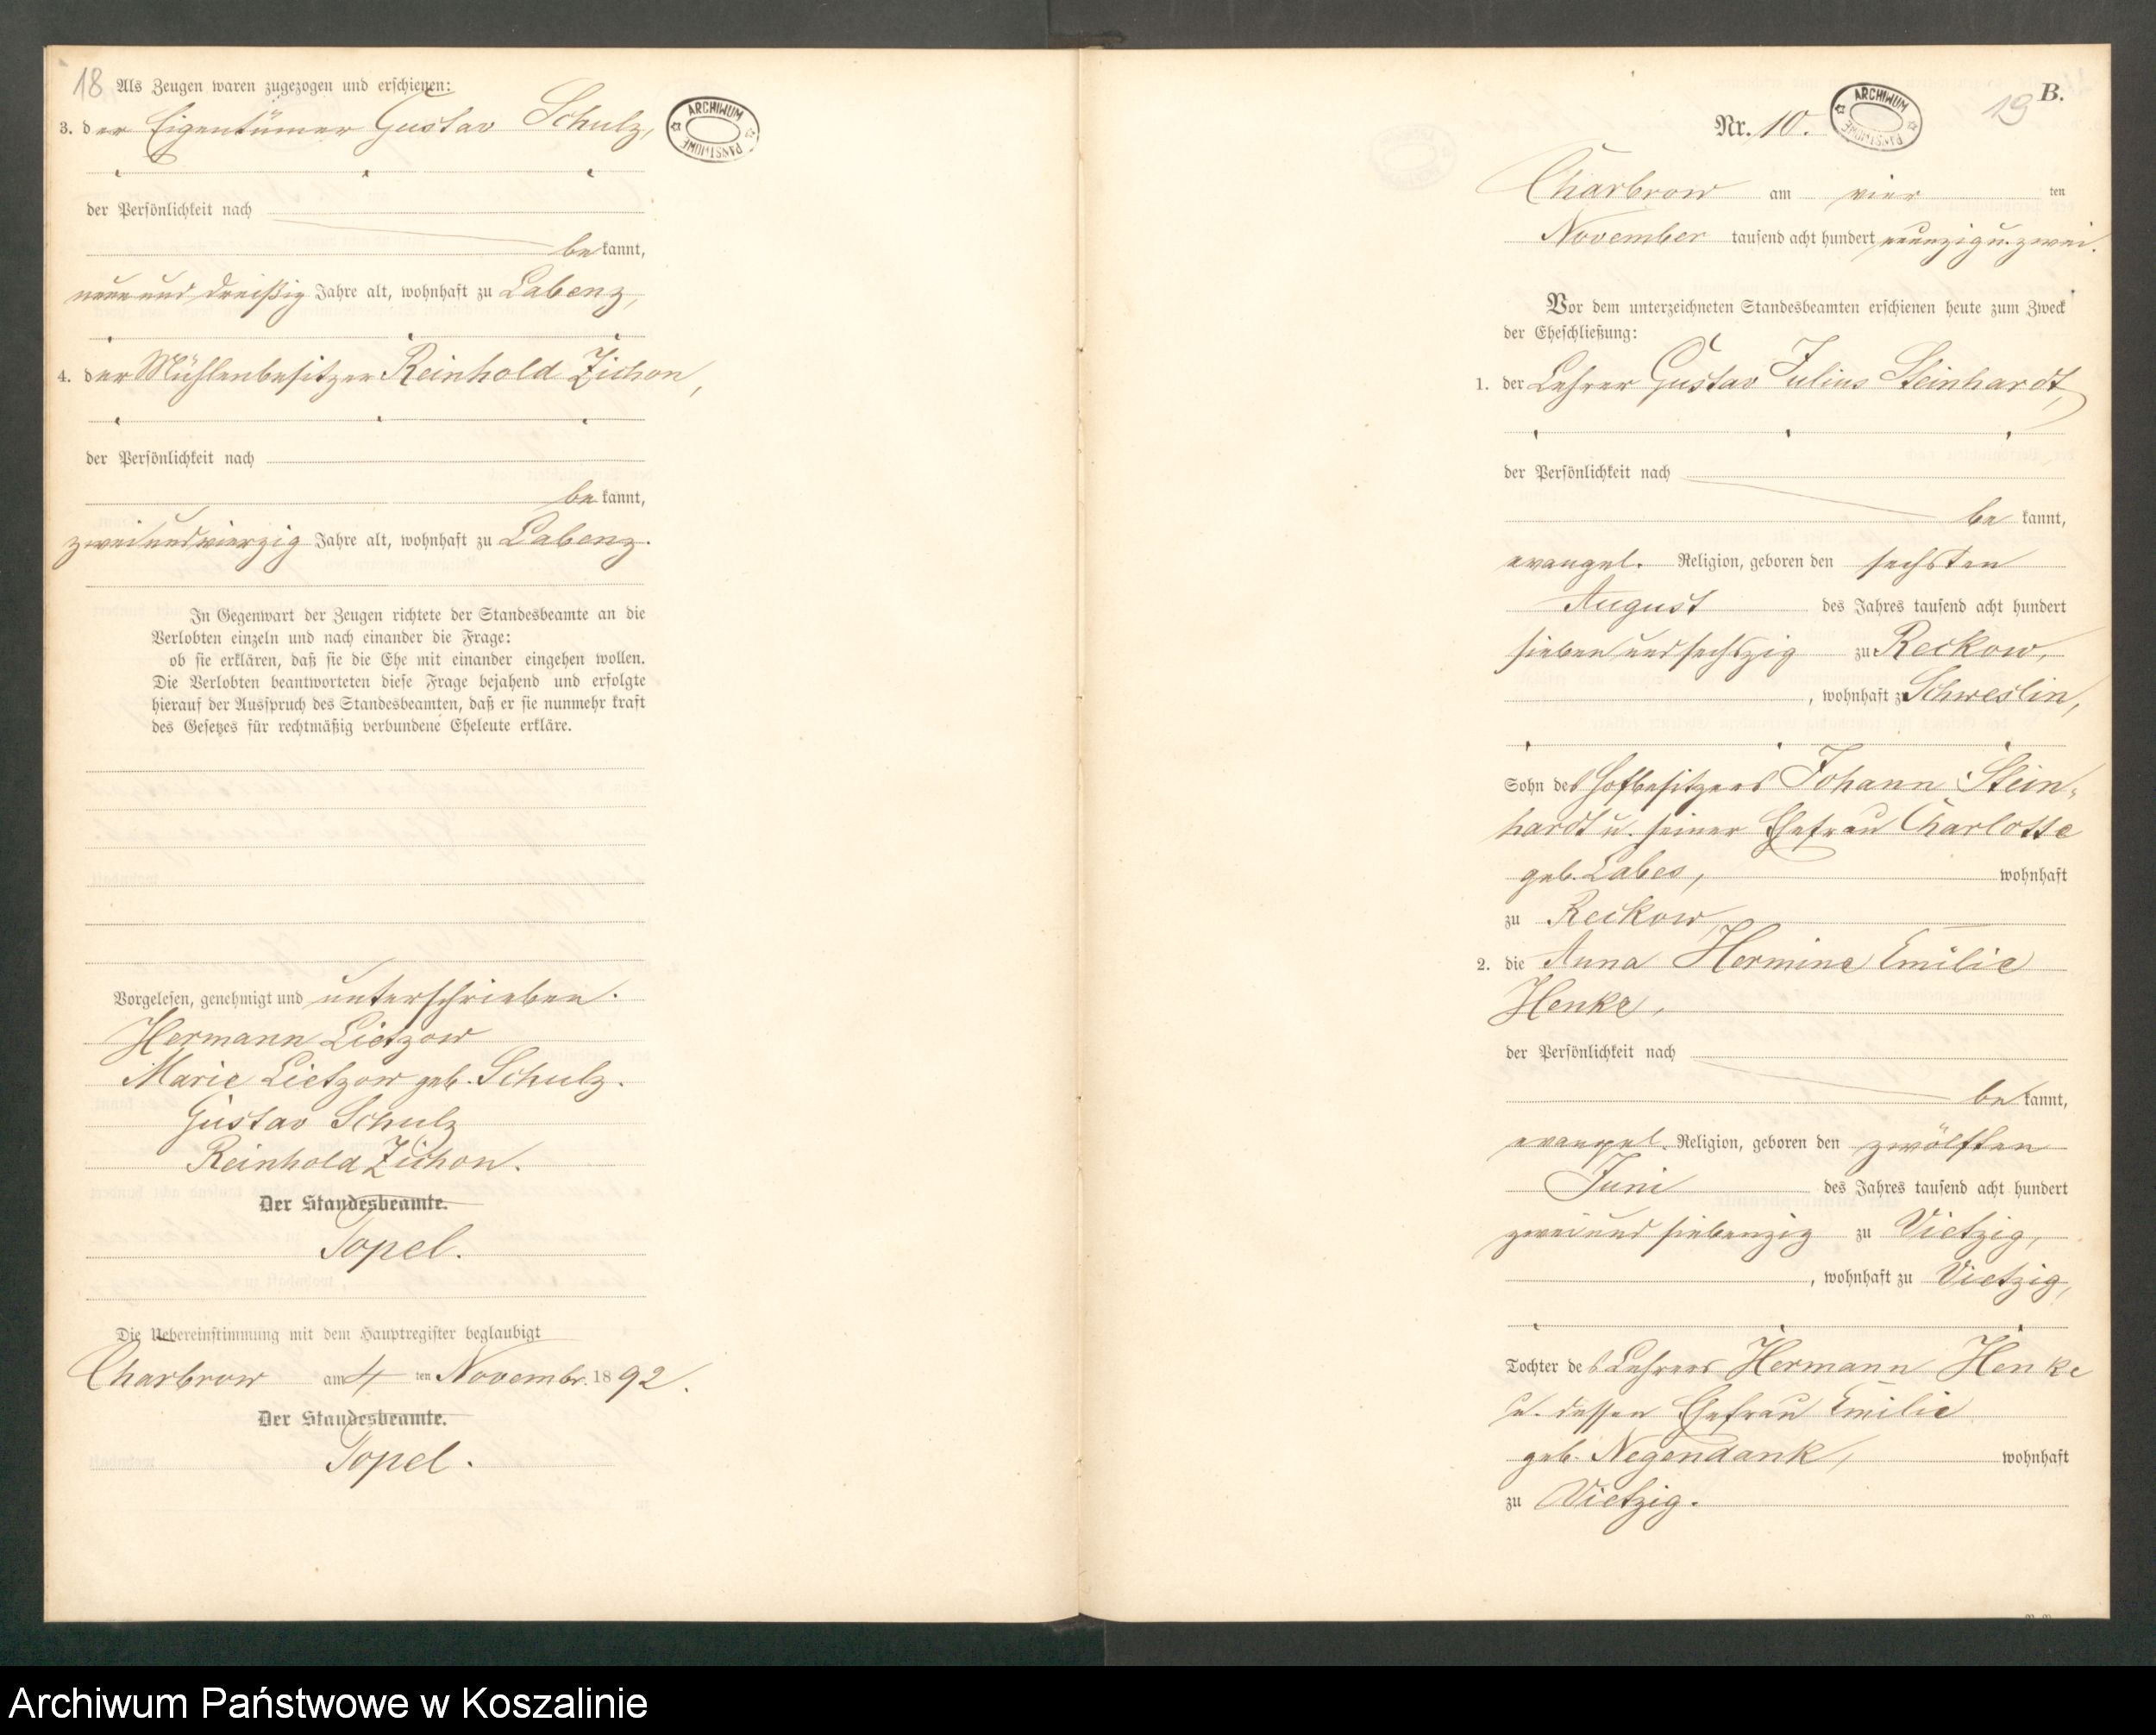 18 Als Zeugen waren zugezogen und erschienen:
3. der Eigentümer Gustav Schulz,
der Persönlichkeit nach
bekannt,
neun und dreißig Jahre alt, wohnhaft zu Labenz,
4. der Mühlenbesitzer Reinhold Zichon,
der Persönlichkeit nach
bekannt,
zwei und vierzig Jahre alt, wohnhaft zu Labenz.
In Gegenwart der Zeugen richtete der Standesbeamte an die
Verlobten einzeln und nach einander die Frage:
ob sie erklären, daß sie die Ehe mit einander eingehen wollen.
Die Verlobten beantworteten diese Frage bejahend und erfolgte
hierauf der Ausspruch des Standesbeamten, daß er sie nunmehr kraft
des Gesetzes für rechtmäßig verbundene Eheleute erkläre.
Vorgelesen, genehmigt und unterschrieben.
Hermann Lietzow
Marie Lietzow geb. Schulz.
Gustav Schulz
Reinhold Zichon.
Der Standesbeamte.
Topel.
Die Uebereinstimmung mit dem Hauptregister beglaubigt
Charbrow am 4 ten Novembr. 1892.
Der Standesbeamte.
Topel.
ARCHIWUM PAŃSTWOWE
B.
19
Nr. 10.
ARCHIWUM PAŃSTWOWE
Charbrow am vier ten
November tausend acht hundert neunzig u. zwei.
Vor dem unterzeichneten Standesbeamten erschienen heute zum Zweck
der Eheschließung:
1. der Lehrer Gustav Julius Steinhardt,
der Persönlichkeit nach
bekannt,
evangel. Religion, geboren den sechsten
August des Jahres tausend acht hundert
sieben und sechszig zu Reckow,
, wohnhaft zu Schweslin,
Sohn des Hofbesitzers Johann Stein-
hardt u. seiner Ehefrau Charlotte
geb. Labes, wohnhaft
zu Reckow,
2. die Anna Hermine Emilie
Henke,
der Persönlichkeit nach
bekannt,
evangel. Religion, geboren den zwölften
Juni des Jahres tausend acht hundert
zwei und siebenzig zu Vietzig,
, wohnhaft zu Vietzig,
Tochter des Lehrers Hermann Henke
u. dessen Ehefrau Emilie
geb. Negendank, wohnhaft
zu Vietzig.
Archiwum Państwowe w Koszalinie